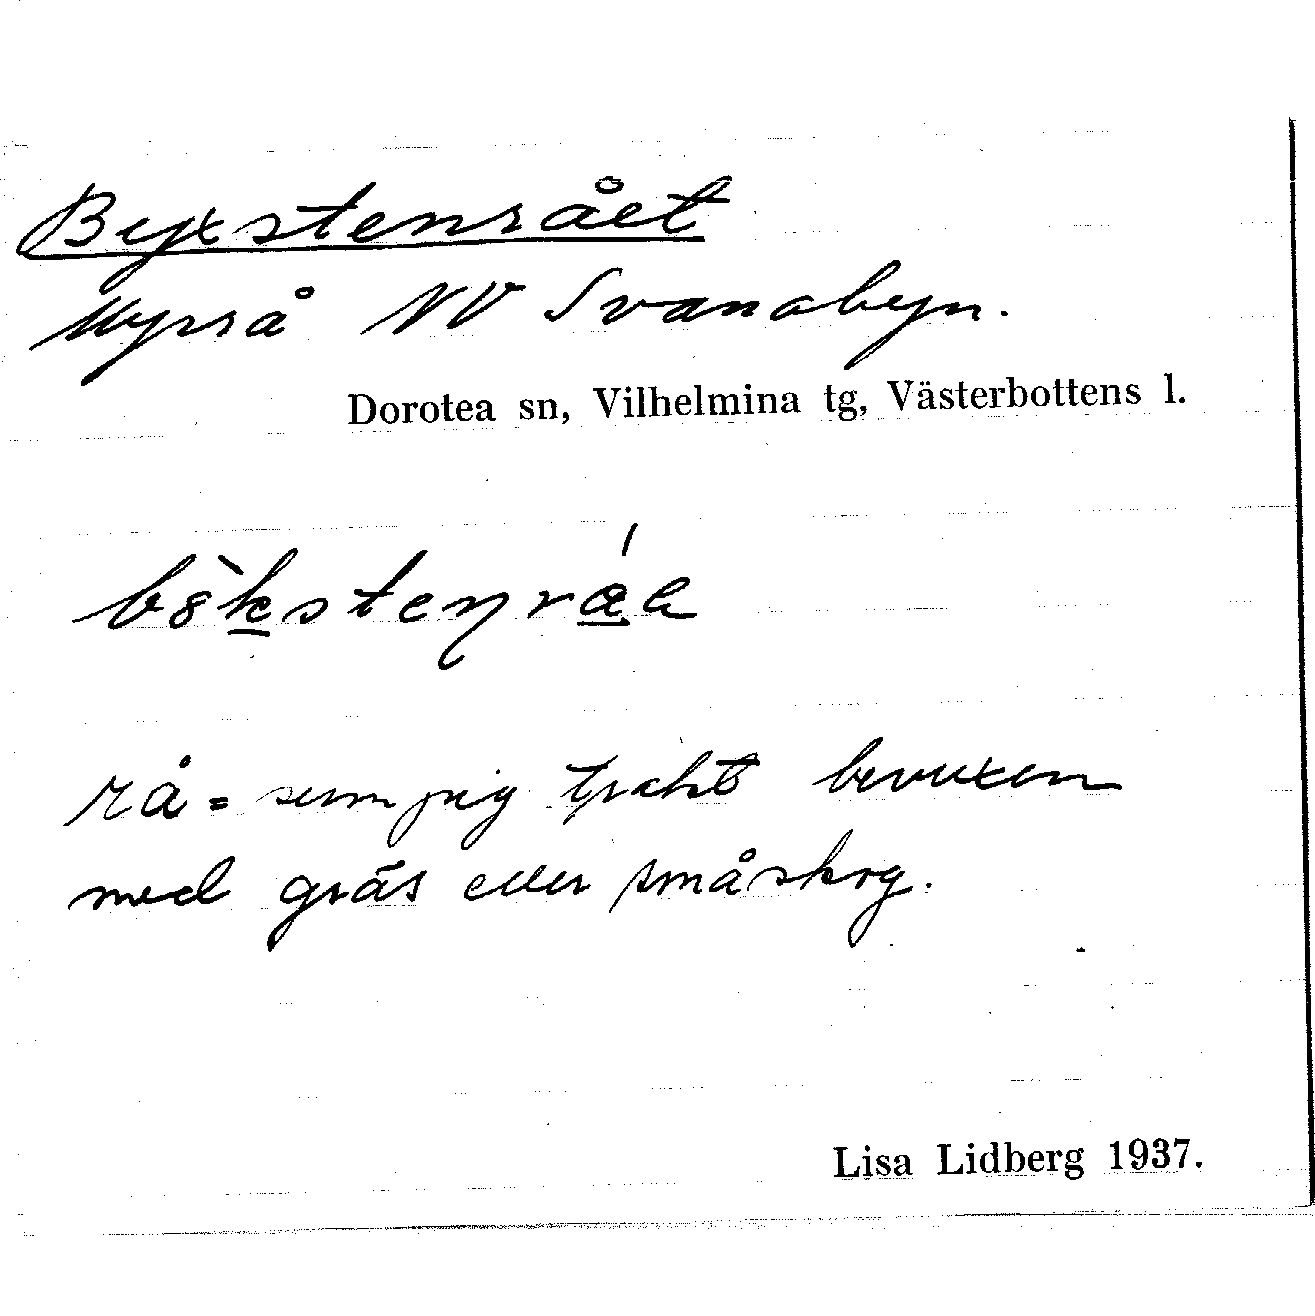 Byxstenrået
Myrrå NV Svanabyn.
Dorotea sn, Vilhelmina tg, Västerbottens l.
rå = sumpig trakt bevuxen
med gräs eller småskog.
Lisa Lidberg 1937.